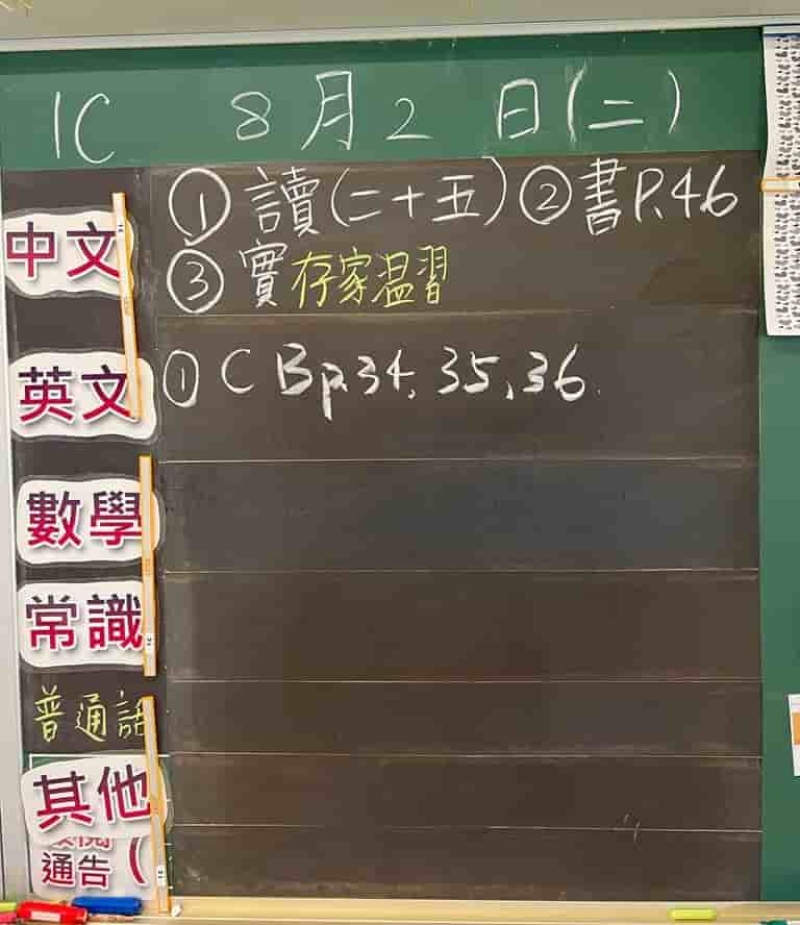 1C 8月2日(二)
中文
①讀(二十五)②書P.46
③實存家温習
英文
①CBp.34, 35, 36.
數學
常識
普通話
其他
通告(